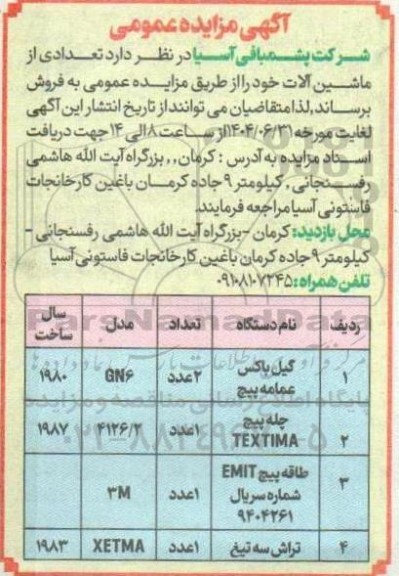 آگهی مزایده عمومی
شرکت پشمبافی آسیا در نظر دارد تعدادی از
ماشین آلات خود را از طریق مزایده عمومی به فروش
برساند، لذا متقاضیان می توانند از تاریخ انتشار این آگهی
لغایت مورخه ۱۴۰۴/۰۶/۳۱ از ساعت ۸ الی ۱۴ جهت دریافت
اسناد مزایده به آدرس : کرمان، , بزرگراه آیت الله هاشمی
رفسنجانی , کیلومتر ۹ جاده کرمان باغین کارخانجات
فاستونی آسیا مراجعه فرمایند.
محل بازدید: کرمان -بزرگراه آیت الله هاشمی رفسنجانی -
کیلومتر ۹ جاده کرمان باغین کارخانجات فاستونی آسیا
تلفن همراه: ۰۹۱۰۸۱۰۷۲۴۵
ردیف نام دستگاه تعداد مدل سال ساخت
۱ گیل باکس عمامه پیچ ۲عدد GN۶ ۱۹۸۰
۲ چله پیچ TEXTIMA ۱عدد ۴۱۲۶/۲ ۱۹۸۷
۳ طاقه پیچ EMIT شماره سریال ۹۴۰۴۲۶۱ ۱عدد ۳M
۴ تراش سه تیغ ۱عدد XETMA ۱۹۸۳
ParsNamadData